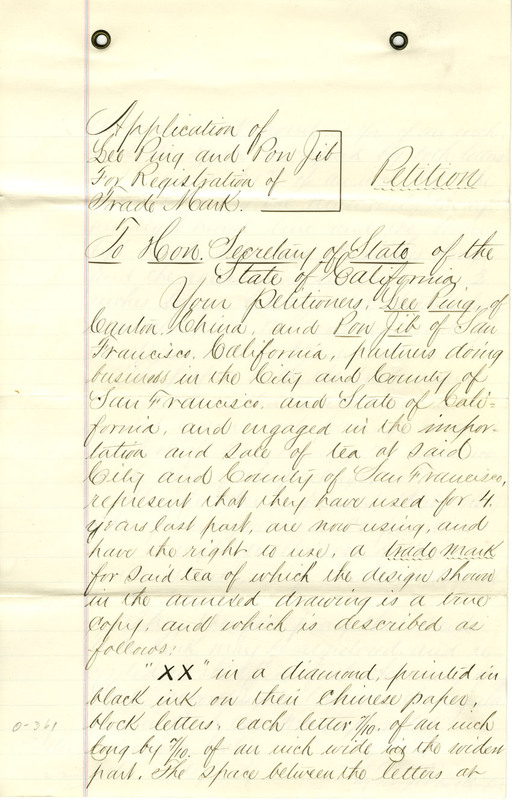 Application of
Lee Ping and Pon Jib
For Registration of
Trade Mark.
Petition
To Hon. Secretary of State of the
State of California.
Your Petitioners, Lee Ping, of
Canton, China, and Pon Jib of San
Francisco, California, partners doing
business in the City and County of
San Francisco, and State of Cali=
fornia, and engaged in the impor-
tation and sale of tea at said
City and County of San Francisco,
represent that they have used for 4.
years last past, are now using, and
have the right to use, a trade mark
for said tea of which the design shown
in the annexed drawing is a true
copy, and which is described as
follows:
"XX" in a diamond, printed in
black ink on their Chinese paper,
block letters, each letter 7/10. of an inch
long by 7/10. of an inch wide in the widest
part. The space between the letters at
0-261